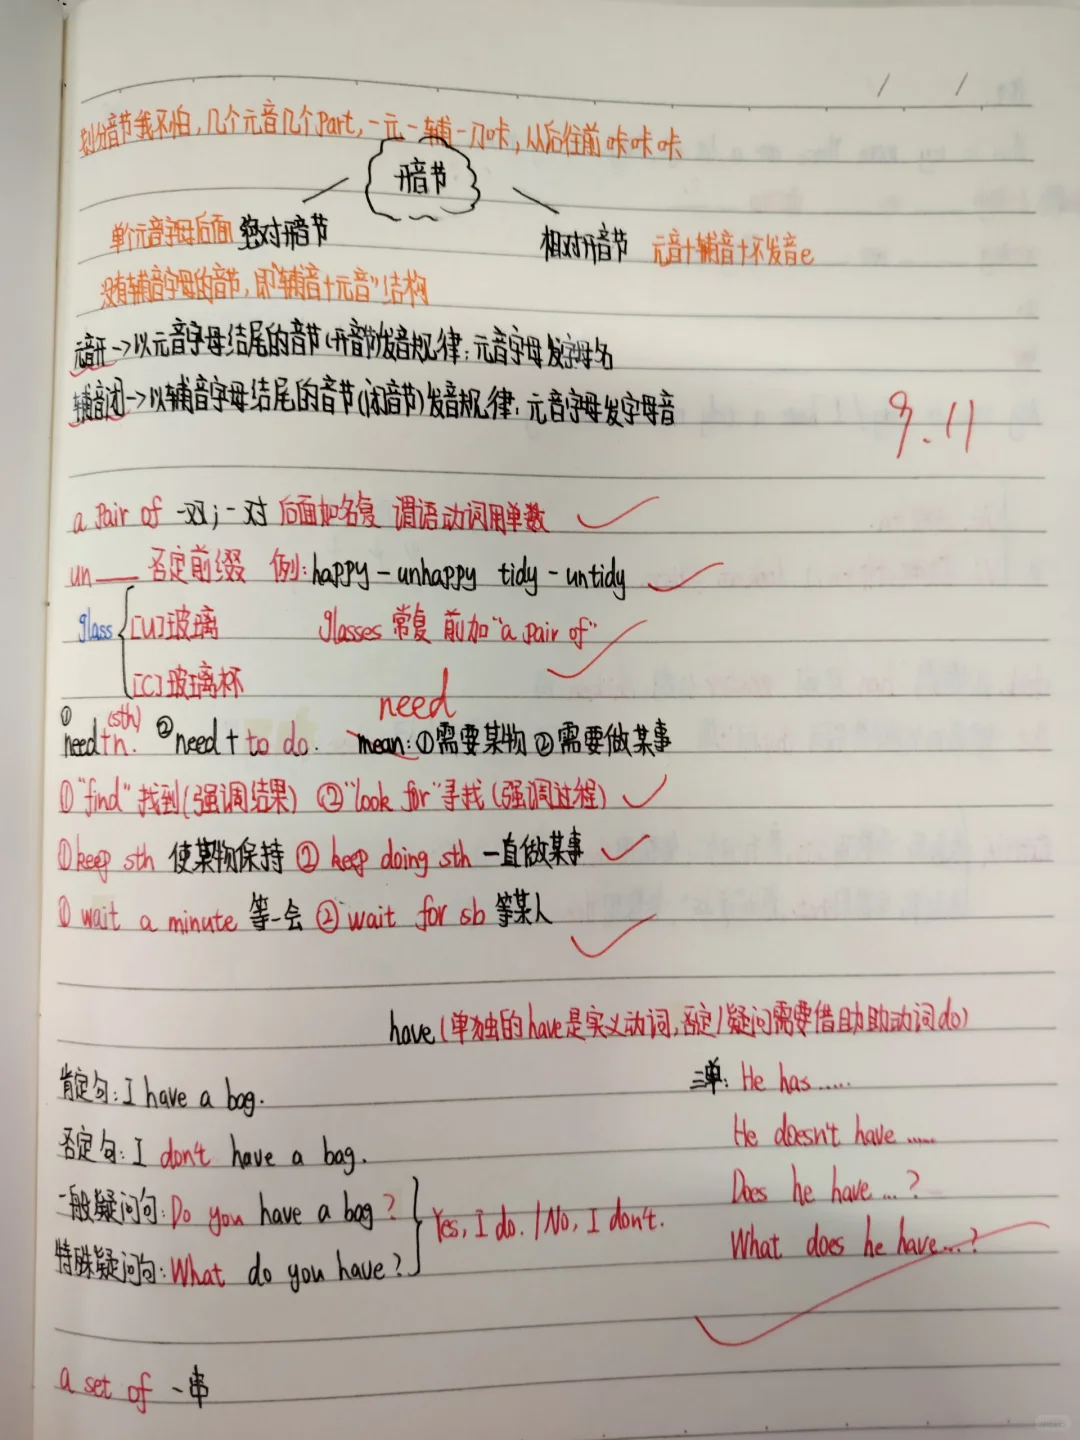 划分音节我不怕，几个元音几个Part，一元一辅一刀咔，从后往前咔咔咔
开音节
单个元音字母后面 绝对开音节
相对开音节 元音+辅音+不发音e
没有辅音字母的音节，即"辅音+元音"结构
元音开→以元音字母结尾的音节(开音节)发音规律：元音字母发字母名
辅音闭→以辅音字母结尾的音节(闭音节)发音规律：元音字母发字母音
9.11
a Pair of 一双；一对 后面加名复 谓语动词用单数
un___ 否定前缀 例：happy-unhappy tidy-untidy
glass { [U]玻璃 glasses 常复 前加"a Pair of"
[C]玻璃杯
need
①need+n.(sth) ②need+to do. mean:①需要某物 ②需要做某事
①"find"找到(强调结果) ②"look for"寻找(强调过程)
①keep sth 使某物保持 ② keep doing sth 一直做某事
① wait a minute 等一会 ② wait for sb 等某人
have(单独的have是实义动词，否定/疑问需要借助助动词do)
肯定句：I have a bag.
否定句：I don't have a bag.
一般疑问句：Do you have a bag？
特殊疑问句：What do you have？
} Yes, I do. / No, I don't.
三单：He has……
He doesn't have ……
Does he have …？
What does he have…？
a set of 一串